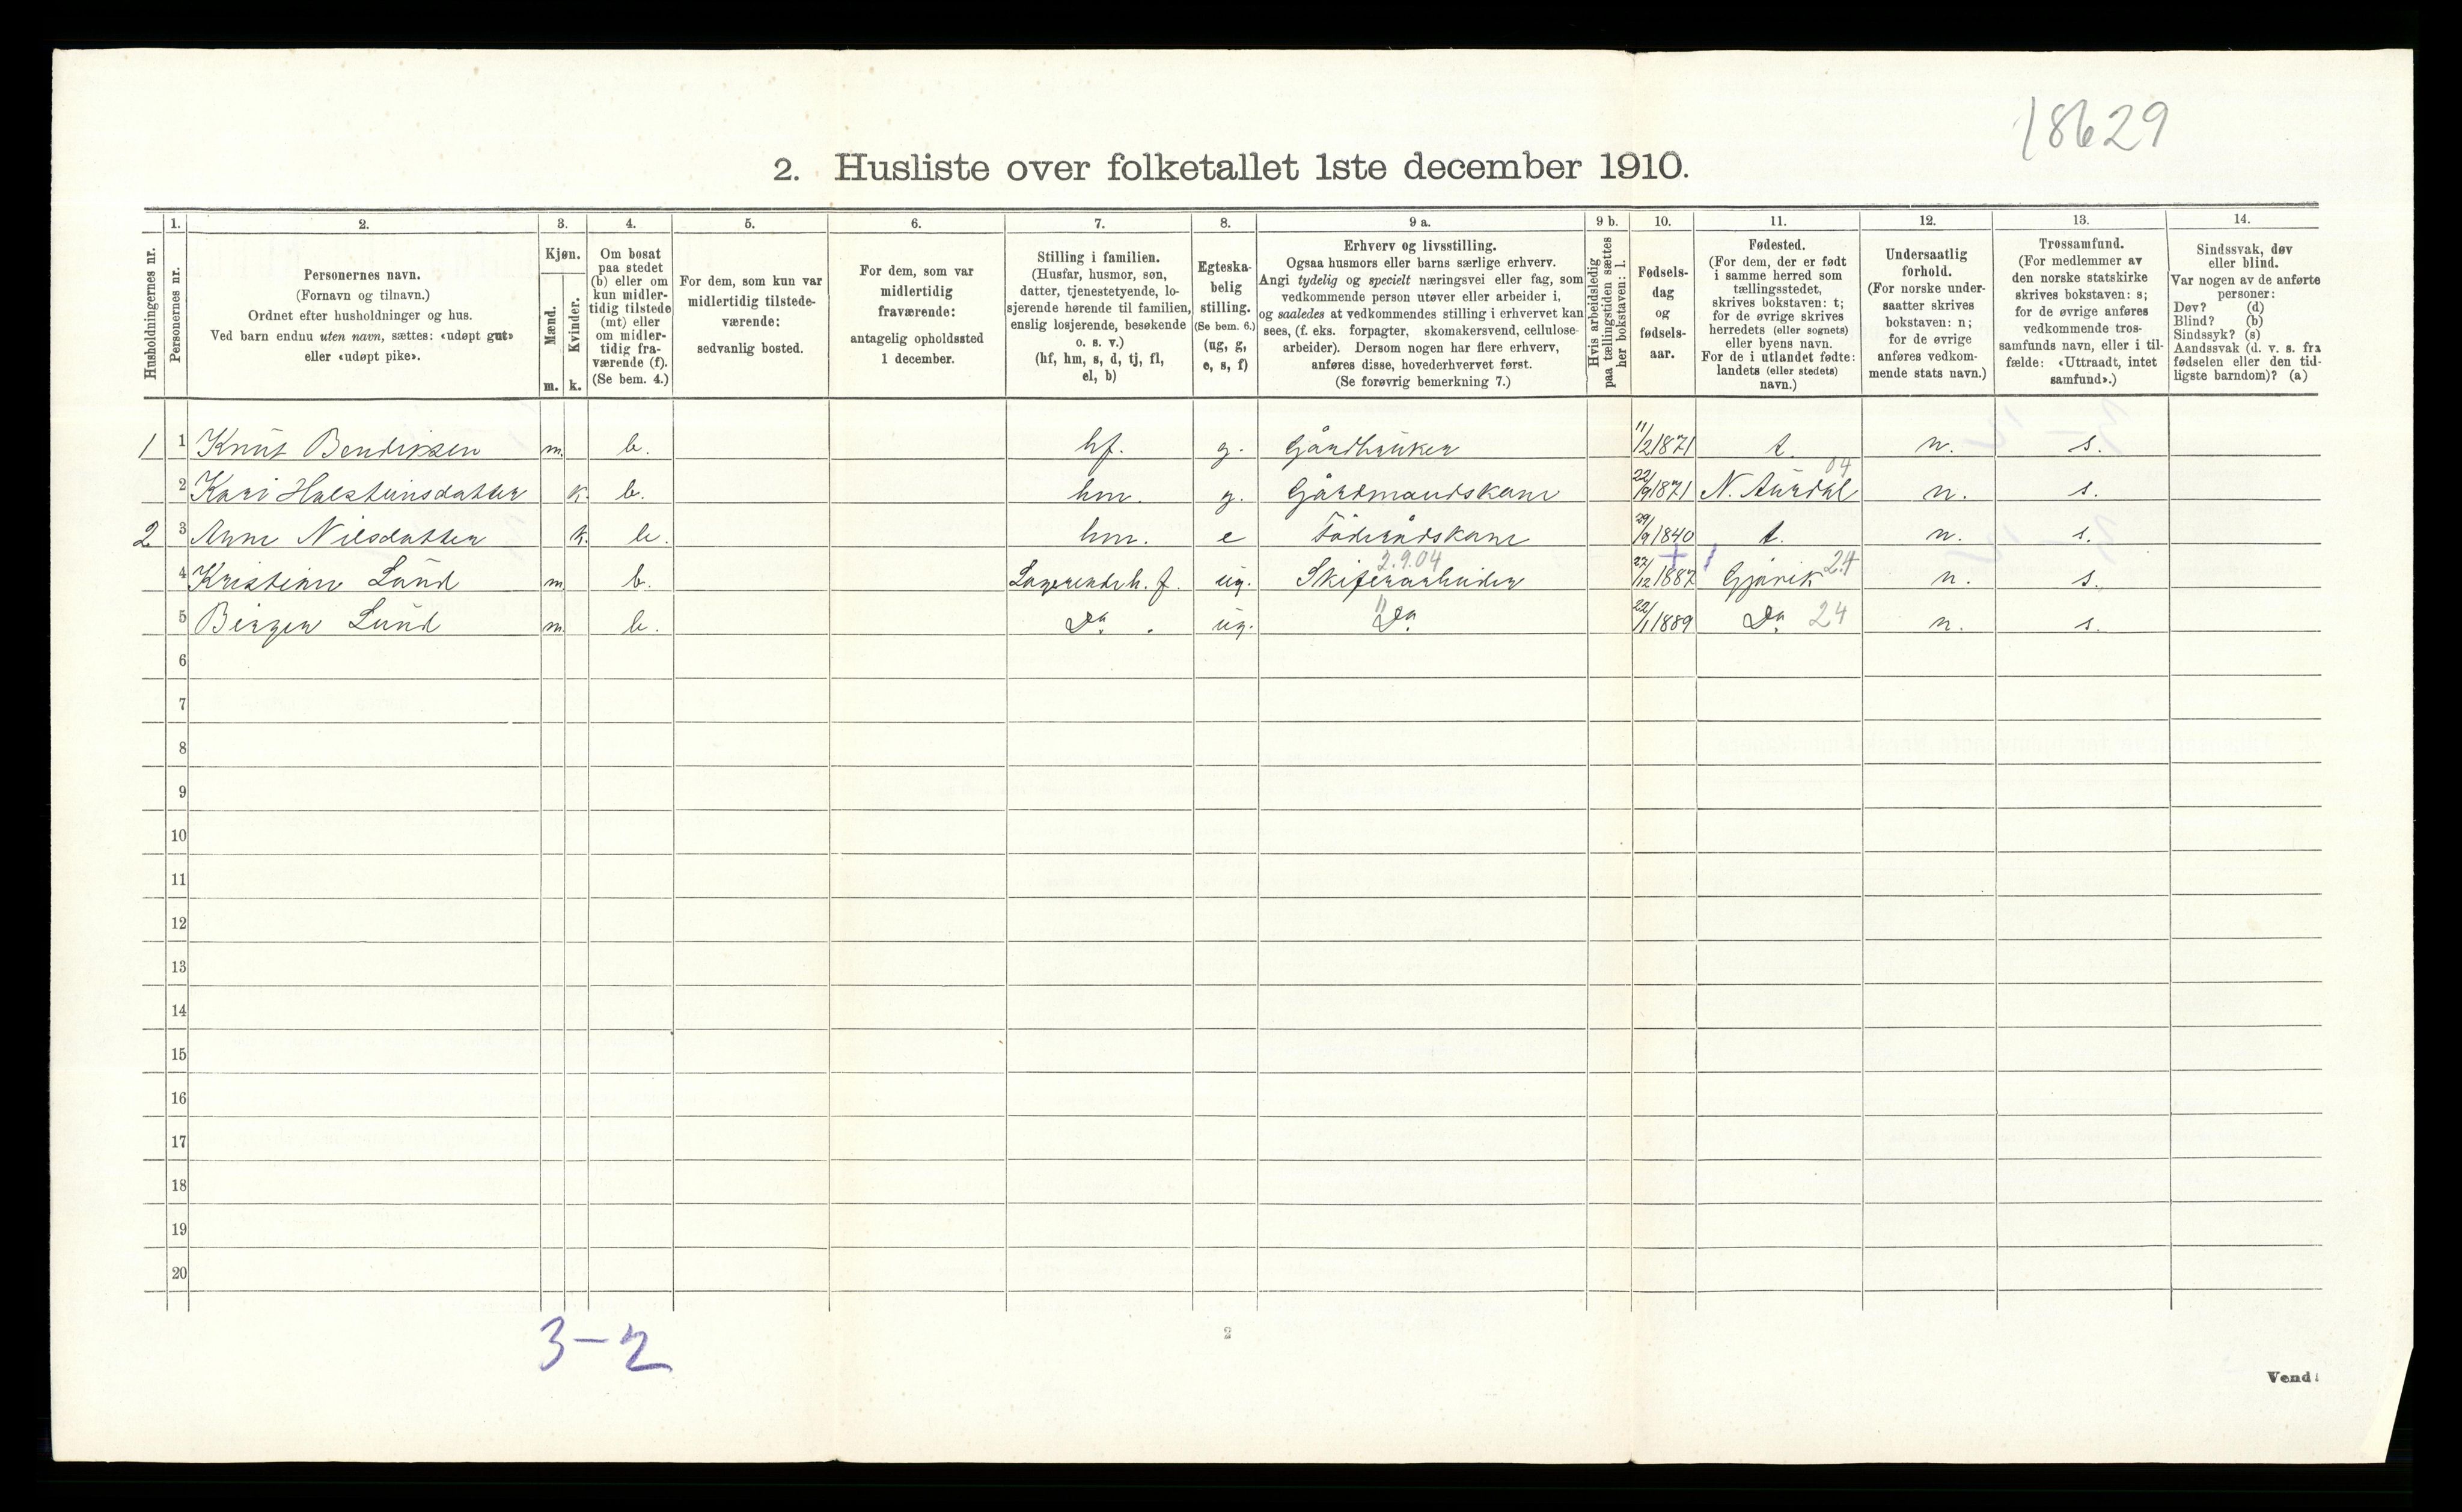 18629
2. Husliste over folketallet 1ste december 1910.
1. 2. 3. 4. 5. 6. 7. 8. 9 a. 9 b. 10. 11. 12. 13. 14.
Husholdningernes nr.
Personernes nr.
Personernes navn.
(Fornavn og tilnavn.)
Ordnet efter husholdninger og hus.
Ved barn endnu uten navn, sættes: «udøpt gut»
eller «udøpt pike».
Kjøn.
Mænd.
Kvinder.
m. k.
Om bosat
paa stedet
(b) eller om
kun midler-
tidig tilstede
(mt) eller
om midler-
tidig fra-
værende (f).
(Se bem. 4.)
For dem, som kun var
midlertidig tilstede-
værende:
sedvanlig bosted.
For dem, som var
midlertidig
fraværende:
antagelig opholdssted
1 december.
Stilling i familien.
(Husfar, husmor, søn,
datter, tjenestetyende, lo-
sjerende hørende til familien,
enslig losjerende, besøkende
o. s. v.)
(hf, hm, s, d, tj, fl,
el, b)
Egteska-
belig
stilling.
(Se bem. 6.)
(ug, g,
e, s, f)
Erhverv og livsstilling.
Ogsaa husmors eller barns særlige erhverv.
Angi tydelig og specielt næringsvei eller fag, som
vedkommende person utøver eller arbeider i,
og saaledes at vedkommendes stilling i erhvervet kan
sees, (f. eks. forpagter, skomakersvend, cellulose-
arbeider). Dersom nogen har flere erhverv,
anføres disse, hovederhvervet først.
(Se forøvrig bemerkning 7.)
Hvis arbeidsledig
paa tællingstiden sættes
her bokstaven: l.
Fødsels-
dag
og
fødsels-
aar.
Fødested.
(For dem, der er født
i samme herred som
tællingsstedet,
skrives bokstaven: t;
for de øvrige skrives
herredets (eller sognets)
eller byens navn.
For de i utlandet fødte:
landets (eller stedets)
navn.)
Undersaatlig
forhold.
(For norske under-
saatter skrives
bokstaven: n;
for de øvrige
anføres vedkom-
mende stats navn.)
Trossamfund.
(For medlemmer av
den norske statskirke
skrives bokstaven: s;
for de øvrige anføres
vedkommende tros-
samfunds navn, eller i til-
fælde: «Uttraadt, intet
samfund».)
Sindssvak, døv
eller blind.
Var nogen av de anførte
personer:
Døv? (d)
Blind? (b)
Sindssyk? (s)
Aandssvak (d. v. s. fra
fødselen eller den tid-
ligste barndom)? (a)
1 1 Knut Bendiksen m. b. hf. g. Gårdbruker 11/2 1871 t. n. s.
2 Kari Halsteinsdatter k. b. hm. g. Gårdmandskone 22/9 1871 N. Aurdal 04 n. s.
2 3 Anne Nilsdatter k. b. hm. e Föderådskone 29/9 1840 t. n. s.
4 Kristian Lund m b. Logerende h. f. ug. Skiferarbeider 2.9.04 27/12 1887 Gjøvik 24 n. s.
5 Birger Lund m b. Do. ug. " Do 22/1 1889 Do 24 n. s.
6
7
8
9
10
11
12
13
14
15
16
17
18
19
20
3-2
2
Vend!